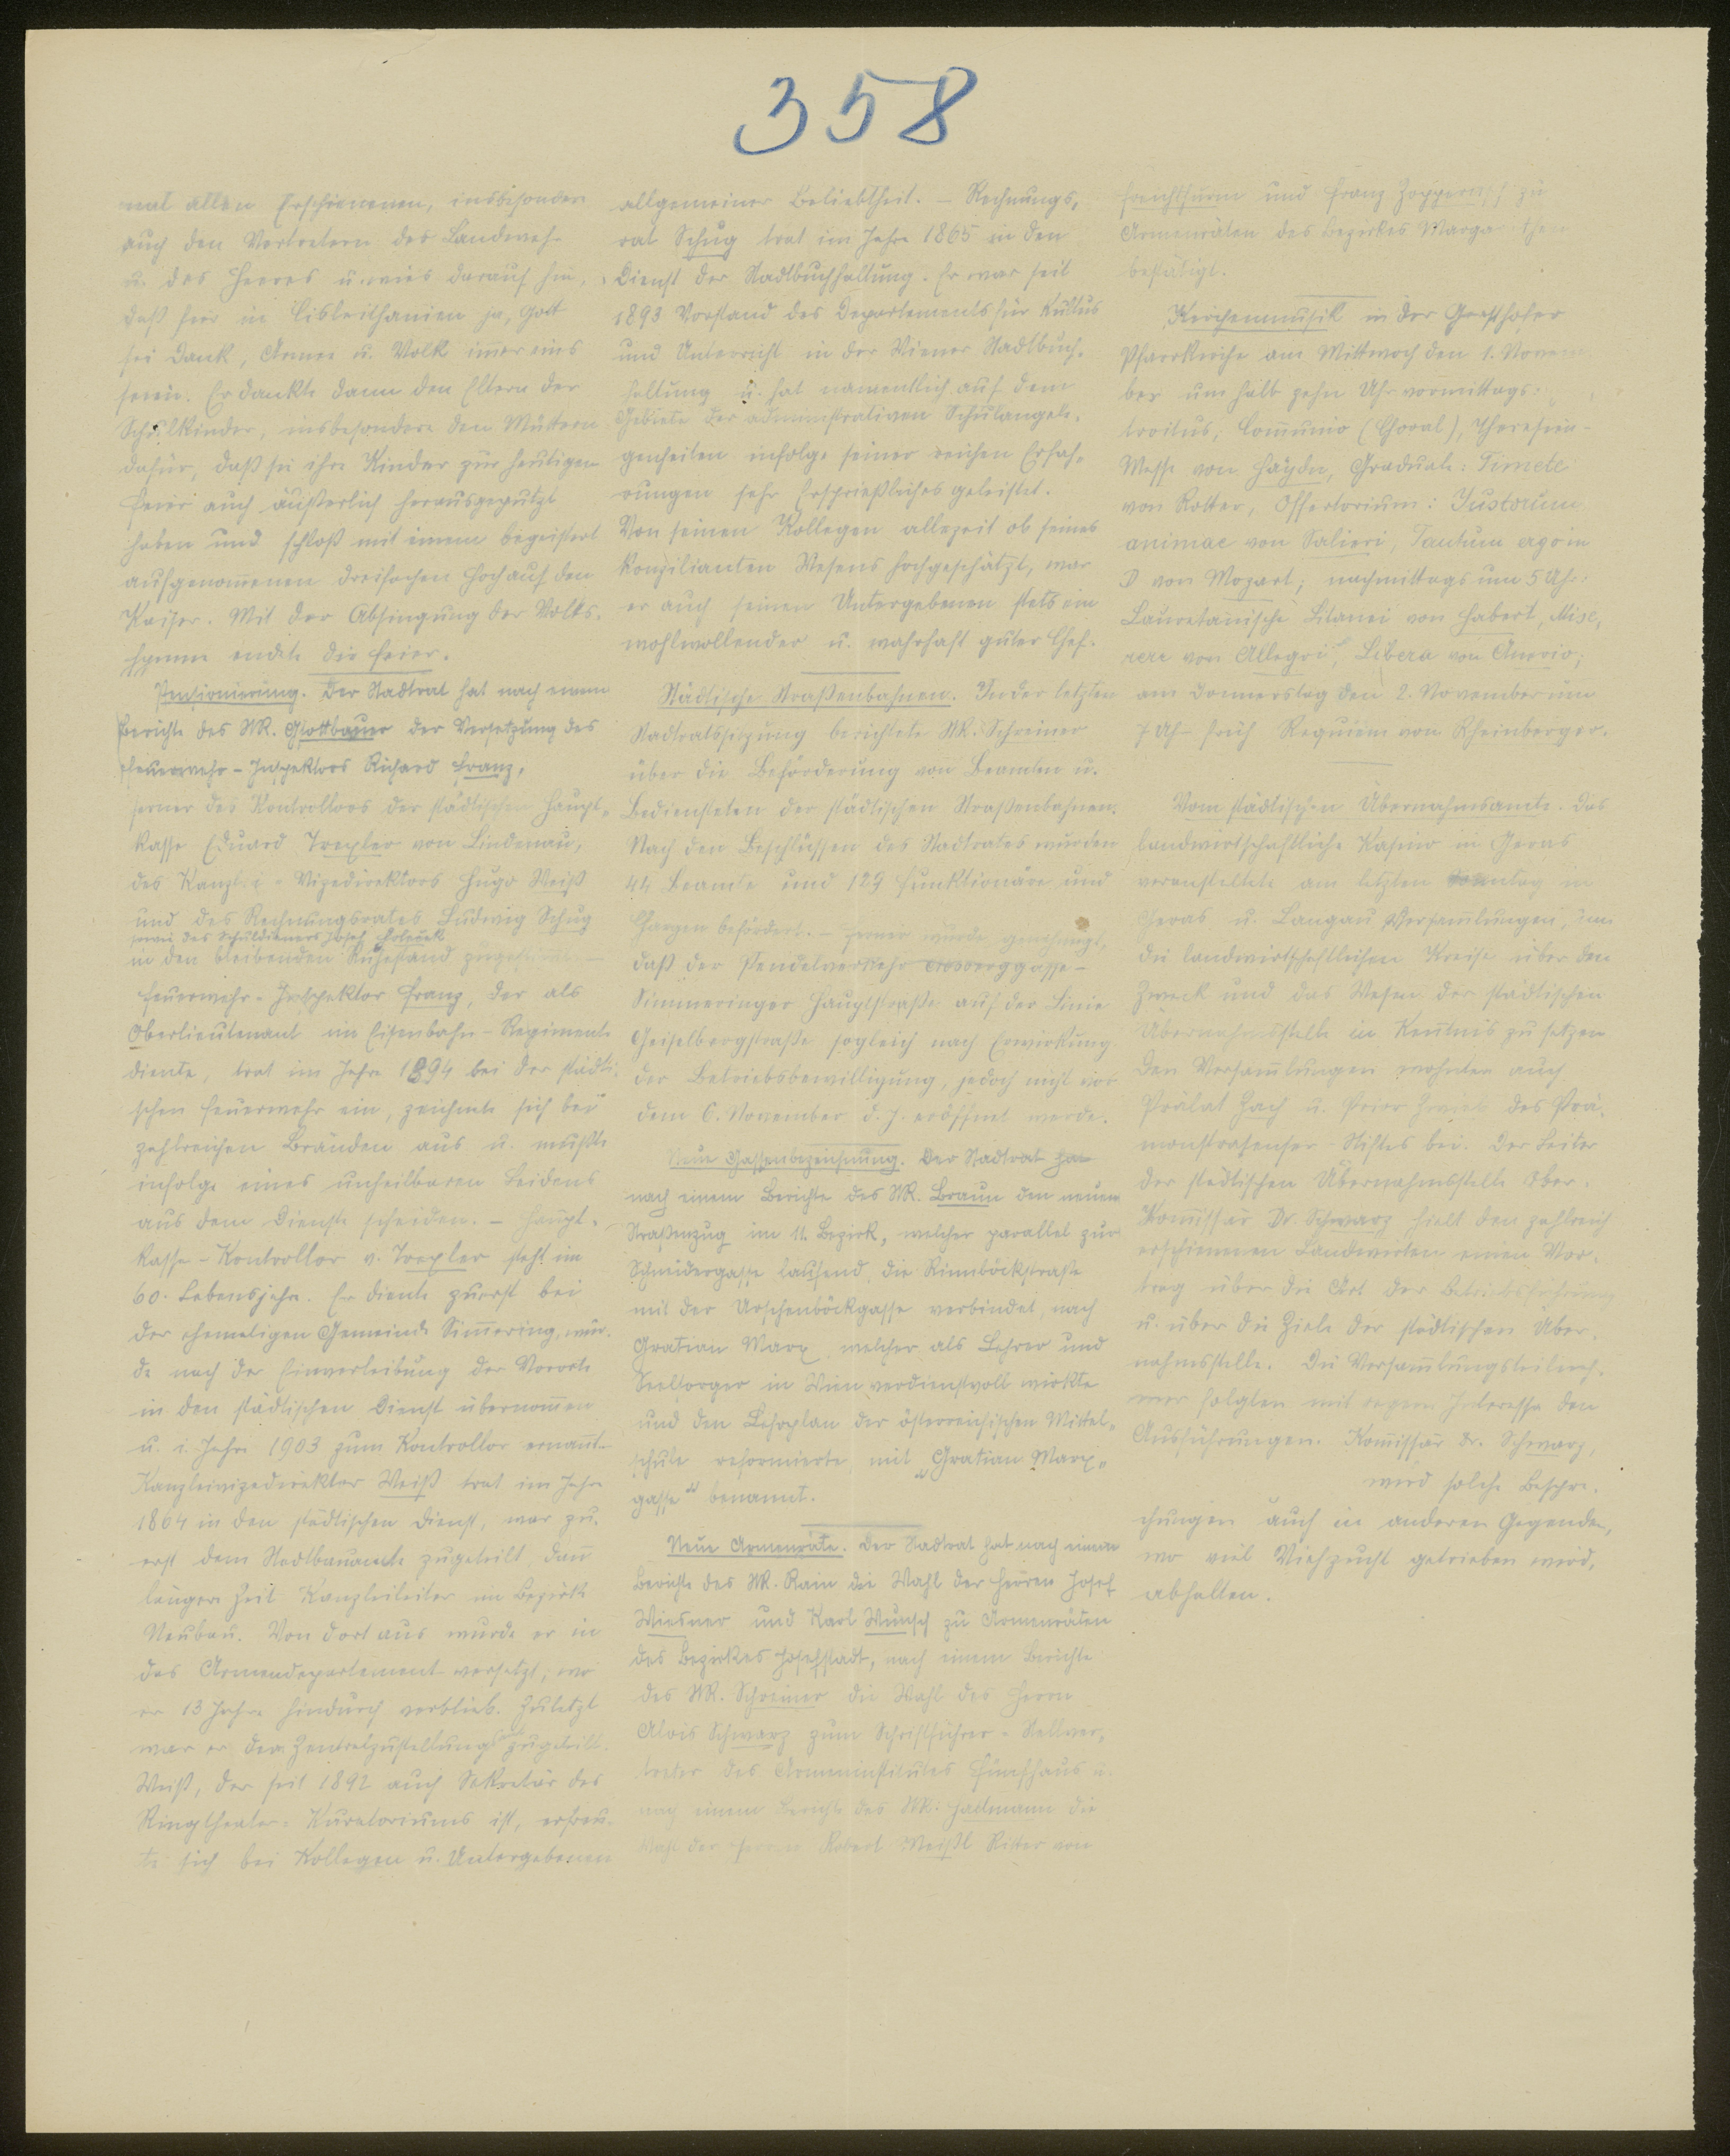 358
mal allen Erschienenen, insbesondere
auch den Vertretern der Landwehr
u. des Heeres u. wies darauf hin,
daß hier in Cisleithanien ja, Gott
sei Dank, Armee u. Volk im̄er eins
seien. Er dankte dann den Eltern der
Schulkinder, insbesondere den Müttern
dafür, daß sie ihre Kinder zur heutigen
Feier auch äußerlich herausgeputzt
haben und schloß mit einem begeistert
aufgenom̄enen dreifachen Hoch auf den
Kaiser. Mit der Absingung der Volks-
hymne endete die Feier.
Pensionierung. Der Stadtrat hat nach einem
Berichte des StR. Grottbauer der Versetzung des
Feuerwehr-Inspektors Richard Franz,
ferner des Kontrollors der städtischen Haupt-
kasse Eduard Trexler von Lindenau,
des Kanzlei-Vizedirektors Hugo Weiß
und des Rechnungsrates Ludwig Schug
sowie des Schuldieners Josef
in den bleibenden Ruhestand zugestimmt. –
Feuerwehr-Inspektor Franz, der als
Oberlieutenant im Eisenbahn-Regimente
diente, trat im Jahre 1894 bei der städti-
schen Feuerwehr ein, zeichnete sich bei
zahlreichen Bränden aus u. mußte
infolge eines unheilbaren Leidens
aus dem Dienste scheiden. – Haupt-
kasse-Kontrollor v. Trexler steht im
60. Lebensjahre. Er diente zuerst bei
der ehemaligen Gemeinde Sim̄ering, wur-
de nach der Einverleibung der Vororte
in den städtischen Dienst übernom̄en
u. i. Jahre 1903 zum Kontrollor ernan̄t. –
Kanzleivizedirektor Weiß trat im Jahre
1864 in den städtischen Dienst, war zu-
erst dem Stadtbauamte zugeteilt, dan̄
längere Zeit Kanzleileiter im Bezirke
Neubau. Von dort aus wurde er in
das Armendepartement versetzt, wo
er 13 Jahre hindurch verblieb. Zuletzt
war er dem Zentralzustellungsamte zugeteilt.
Weiß, der seit 1892 auch Sekretär des
Ringtheater-Kuratoriums ist, erfreu-
te sich bei Kollegen u. Untergebenen
allgemeiner Beliebtheit. – Rechnungs-
rat Schug trat im Jahre 1865 in den
Dienst der Stadtbuchhaltung. Er war seit
1893 Vorstand des Departements für Kultus
und Unterricht in der Wiener Stadtbuch-
haltung u. hat namentlich auf dem
Gebiete der administrativen Schulangele-
genheiten infolge seiner reichen Erfah-
rungen sehr Ersprießliches geleistet.
Von seinen Kollegen allezeit ob seines
konzilianten Wesens hochgeschätzt, war
er auch seinen Untergebenen stets ein
wohlwollender u. wahrhaft guter Chef.
Städtische Straßenbahnen. In der letzten
Stadtratssitzung berichtete StR. Schreiner
über die Beförderung von Beamten u.
Bediensteten der städtischen Straßenbahnen.
Nach den Beschlüssen des Stadtrates wurden
44 Beamte und 129 Funktionäre und
Chargen befördert. – Ferner wurde genehmigt,
daß der Pendelverkehr
Simmeringer Hauptstraße auf der Linie
Geiselbergstraße sogleich nach Erwirkung
der Betriebsbewilligung, jedoch nicht vor
dem 6. November d. J. eröffnet werde.
Neue Gassenbezeichnung. Der Stadtrat hat
nach einem Berichte des StR. Braun den neuen
Straßenzug im 11. Bezirk, welcher parallel zur
Schneidergasse laufend, die Rinnböckstraße
mit der Urschenböckgasse verbindet, nach
Gratian Marx, welcher als Lehrer und
Seelsorger in Wien verdienstvoll wirkte
und den Lehrplan der österreichischen Mittel-
schule reformierte mit „Gratian Marx-
gasse“ benannt.
Neue Armenräte. Der Stadtrat hat nach einem
Berichte des StR. Rain die Wahl der Herren Josef
Wiesner und Karl Wunsch zu Armenräten
des Bezirkes Josefstadt, nach einem Berichte
des StR. Schreiner die Wahl des Herrn
Alois Schwarz zum Schriftführer-Stellver-
treter des Armeninstitutes Fünfhaus u.
nach einem Berichte des StR. Hallmann die
Wahl der Herren Robert Weißl Ritter von
und Franz zu
Armenräten des Bezirkes Margarethen
bestätigt.
Kirchenmusik in der Gersthofer
Pfarrkirche am Mittwoch den 1. Novem-
ber um halb zehn Uhr vormittags:
troitus, Com̄unio (Choral), Theresien-
Messe von Haydn, Graduale: Timete
von Rotter, Offertorium: Justorum
animae von Salieri, Tantum ergo in
D von Mozart; nachmittags um 5 Uhr:
Lauretanische Litanei von Habert, Mise-
rere von Allegri, Libera von Anerio;
am Donnerstag den 2. November um
7 Uhr früh Requiem von Rheinberger.
Vom städtischen Übernahmsamte. Das
landwirtschaftliche Kasino in Geras
veranstaltete am letzten Sonntag in
Geras u. Langau Versam̄lungen, um
die landwirtschaftlichen Kreise über den
Zweck und das Wesen der städtischen
Übernahmsstelle in Kenntnis zu setzen.
Den Versam̄lungen wohnten auch
Prälat Zach u. Prior des Prä-
monstratenser-Stiftes bei. Der Leiter
der städtischen Übernahmsstelle Ober-
Kom̄issär Dr. Schwarz hielt den zahlreich
erschienenen Landwirten einen Vor-
trag über die Art der Betriebsführung
u. über die Ziele der städtischen Über-
nahmsstelle. Die Versam̄lungsteilneh-
mer folgten mit regem Interesse den
Ausführungen. Kom̄issär Dr. Schwarz,
wird solche Bespre-
chungen auch in anderen Gegenden,
wo viel Viehzucht getrieben wird,
abhalten.